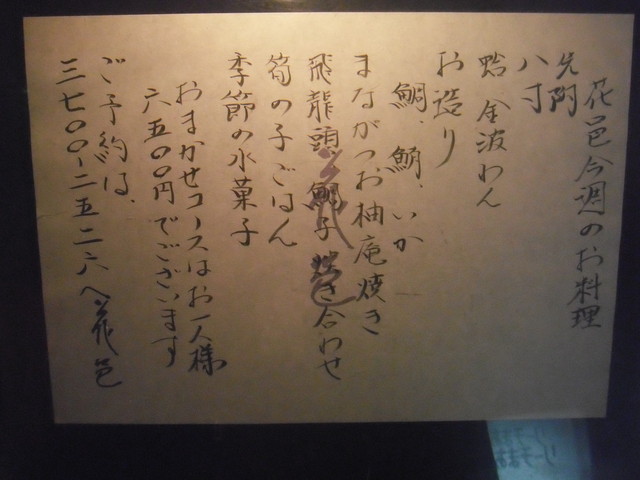 花邑今週のお料理
先附
八寸
蛤 金波わん
お造り
鯛、鮪、いか
まながつお柚庵焼き
飛龍頭、鯛子炊き合わせ
筍の子ごはん
季節の水菓子
おまかせコースはお一人様
六五〇〇円でございます
ご予約は、
三七〇〇-二五二六へ 花邑
花邑